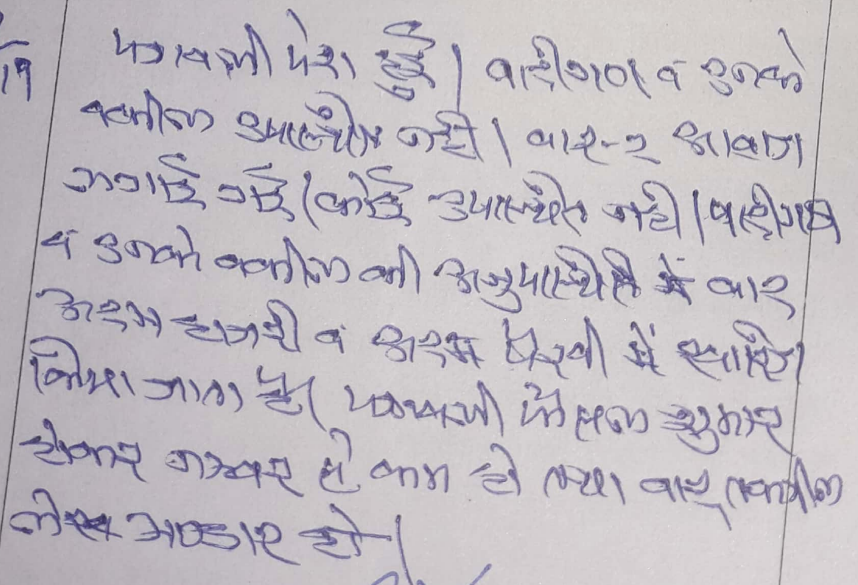 19
पत्रावली पेश हुई। वादीगण व उनके
वकील उपस्थित नहीं। बार-२ आवाज
लगाई गई। कोई उपस्थित नहीं। वादीगण
व उनके वकील की अनुपस्थिति में वाद
अदम हाजरी व अदम पैरवी में खारिज
किया जाता है। पत्रावली फैसल शुमार
होकर नम्बर से कम हो तथा बाद तकमील
लेख भण्डार हो।